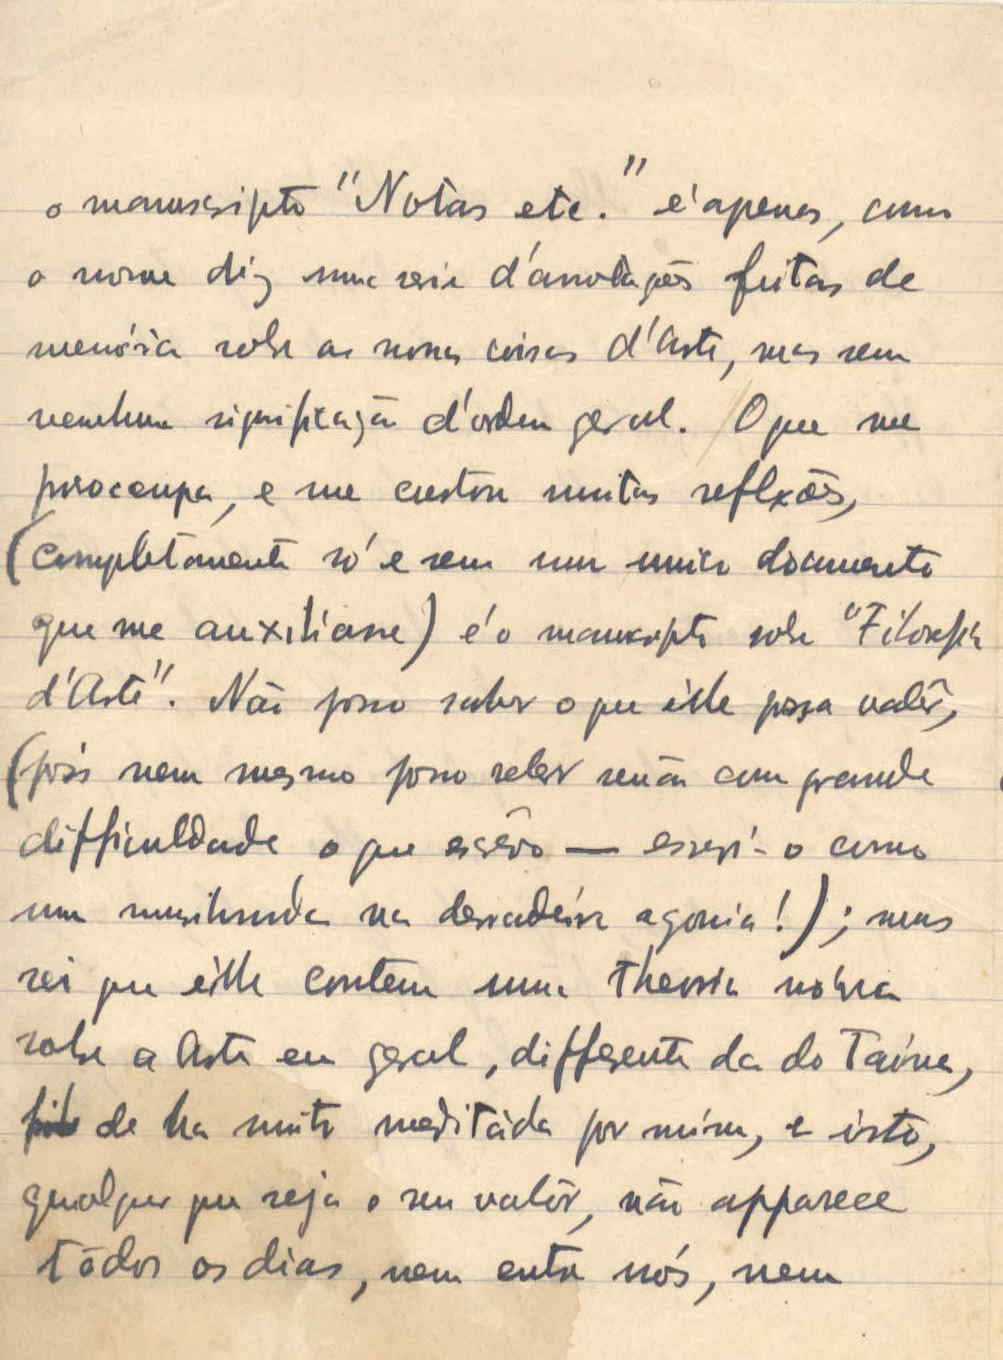 o manuscripto "Notas etc." é apenas, como
o nome diz uma serie d'annotações feitas de
memória sobre as nossas coisas d'Arte, mas sem
nenhuma significação d'ordem geral. O que me
preoccupa, e me custou muitas reflexões,
(completamente só e sem um unico documento
que me auxiliasse) é o manuscripto sobre "Filosofia
d'Arte". Não posso saber o que êlle possa valêr,
(pois nem mesmo posso reler senão com grande
difficuldade o que escrêvo — escrevi-o como
um moribundo na derradeira agonia!); mas
sei que êlle contem uma theoria nóva
sobre a Arte em geral, differente da do Taine,
de ha muito meditáda por mim, e isto,
qualquer que seja o seu valôr, não apparece
tôdos os dias, nem entre nós, nem